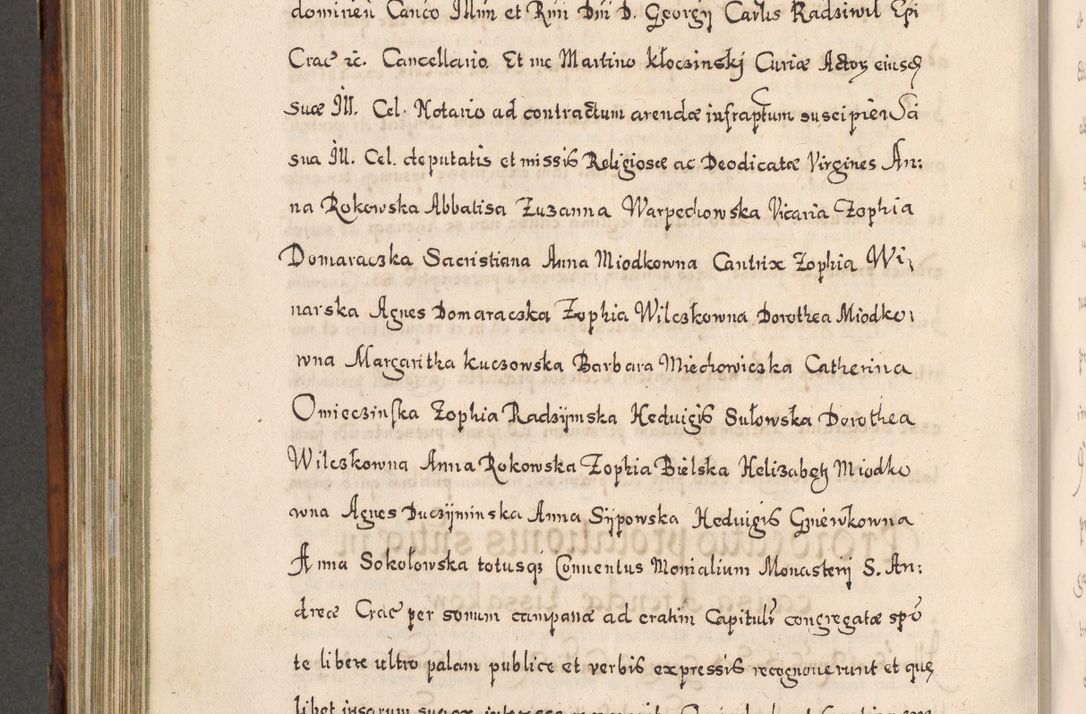 dominen Canco Illm et Rmi Dni D. Georgij Carlis Radziwil Epi
Crac̃ rc. Cancellario Et me Martino Kłoczinskj Curiæ Actorꝫ eiusdꝫ
suæ Ill. Cel. Notario ad contractum arendæ infraptum suscipien
sua Ill. Cel. deputatis et missis Religiosæ ac Deodicatæ Virgines An:
na Rokowska Abbatisa Zuzanna Warpechowska Vicaria Zophia
Domaraczka Sacristiana Anna Miodkowna Cantrix Zophia Wi:
narska Agnes Domaraczka Zophia Wilczkowna Dorothea Miodko:
wna Margaritha Kuczowska Barbara Miechowiczka Catherina
Omieczinska Zophia Radzijmska Heduigis Sułowska Dorothea
Wilczkowna Anna Rokowska Zophia Bielska Helizabeth Miodko
wna Agnes Duczijminska Anna Sijpowska Heduigis Gniewkowna
Anna Sokołowska totusqꝫ Conuentus Monialium Monasterij S. An:
dreæ Crac̃ per sonum campanæ ad cratim Capitulr̃ congregatæ spõ
te libere ultro palam publice et verbis expressis recognouerunt et quę
libet ipsarum